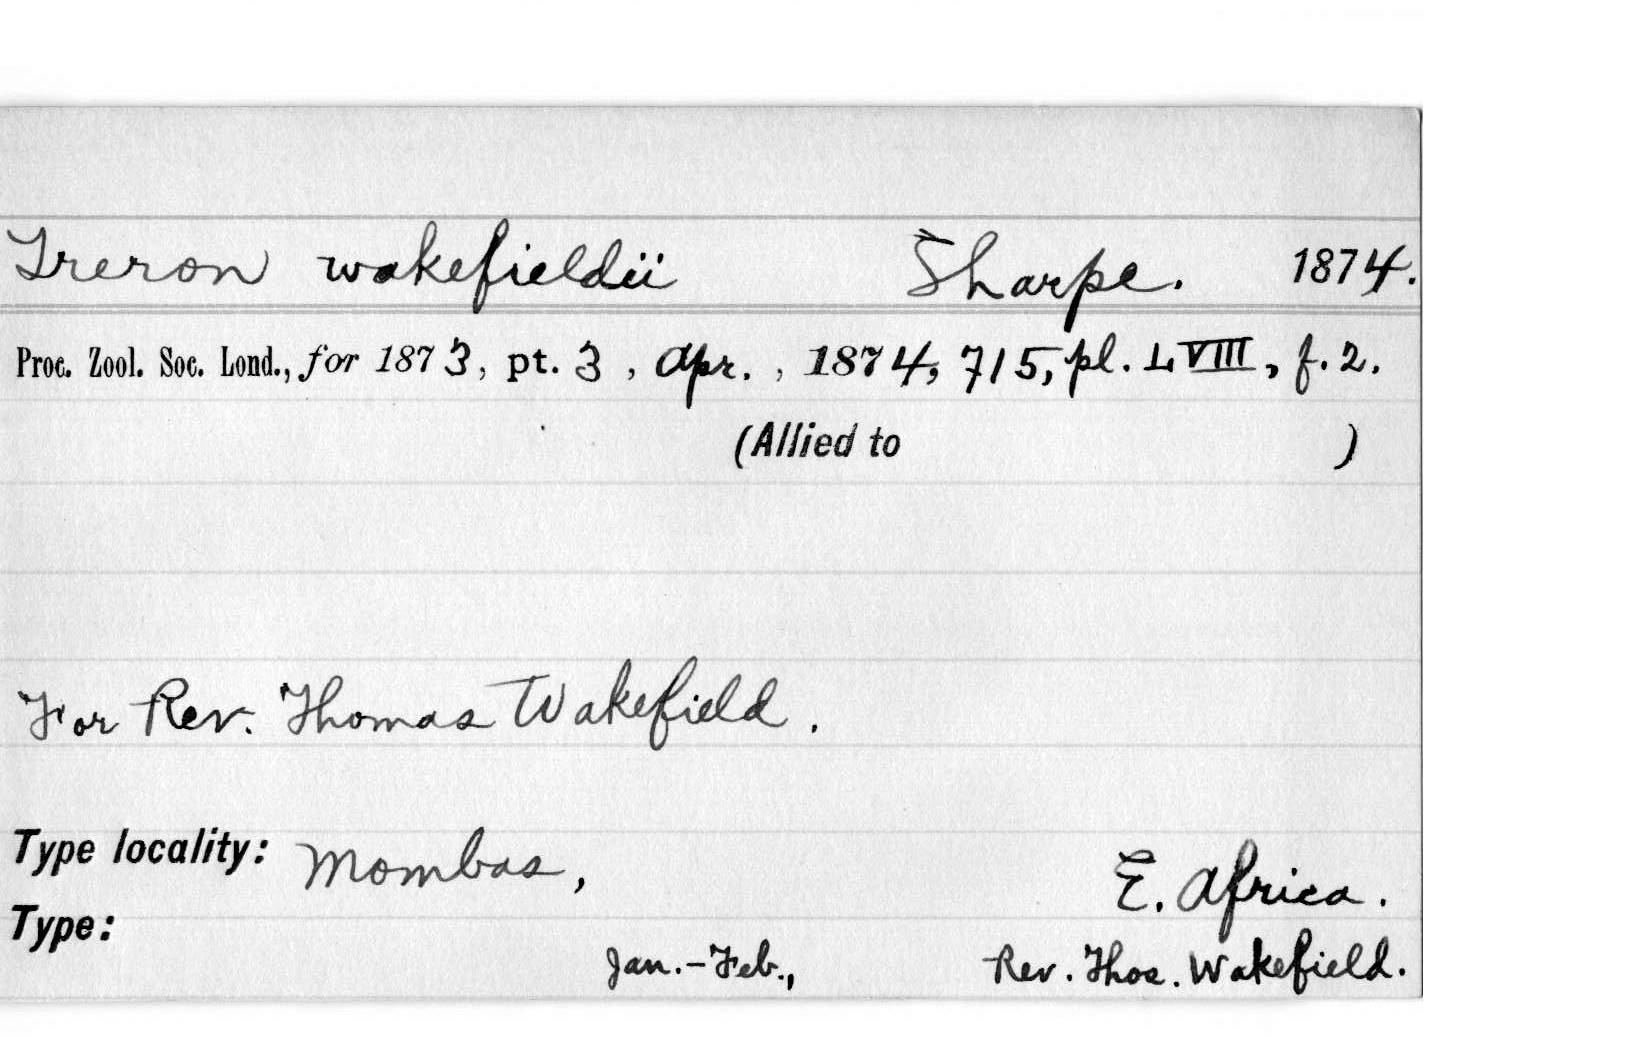 Treron wakefieldii Sharpe. 1874.
Proc. Zool. Soc. Lond., for 1873, pt. 3, Apr., 1874, 715, pl. LVIII, f. 2.
(Allied to )
For Rev. Thomas Wakefield.
Type locality: Mombas, E. Africa.
Type:
Jan.-Feb., Rev. Thos. Wakefield.